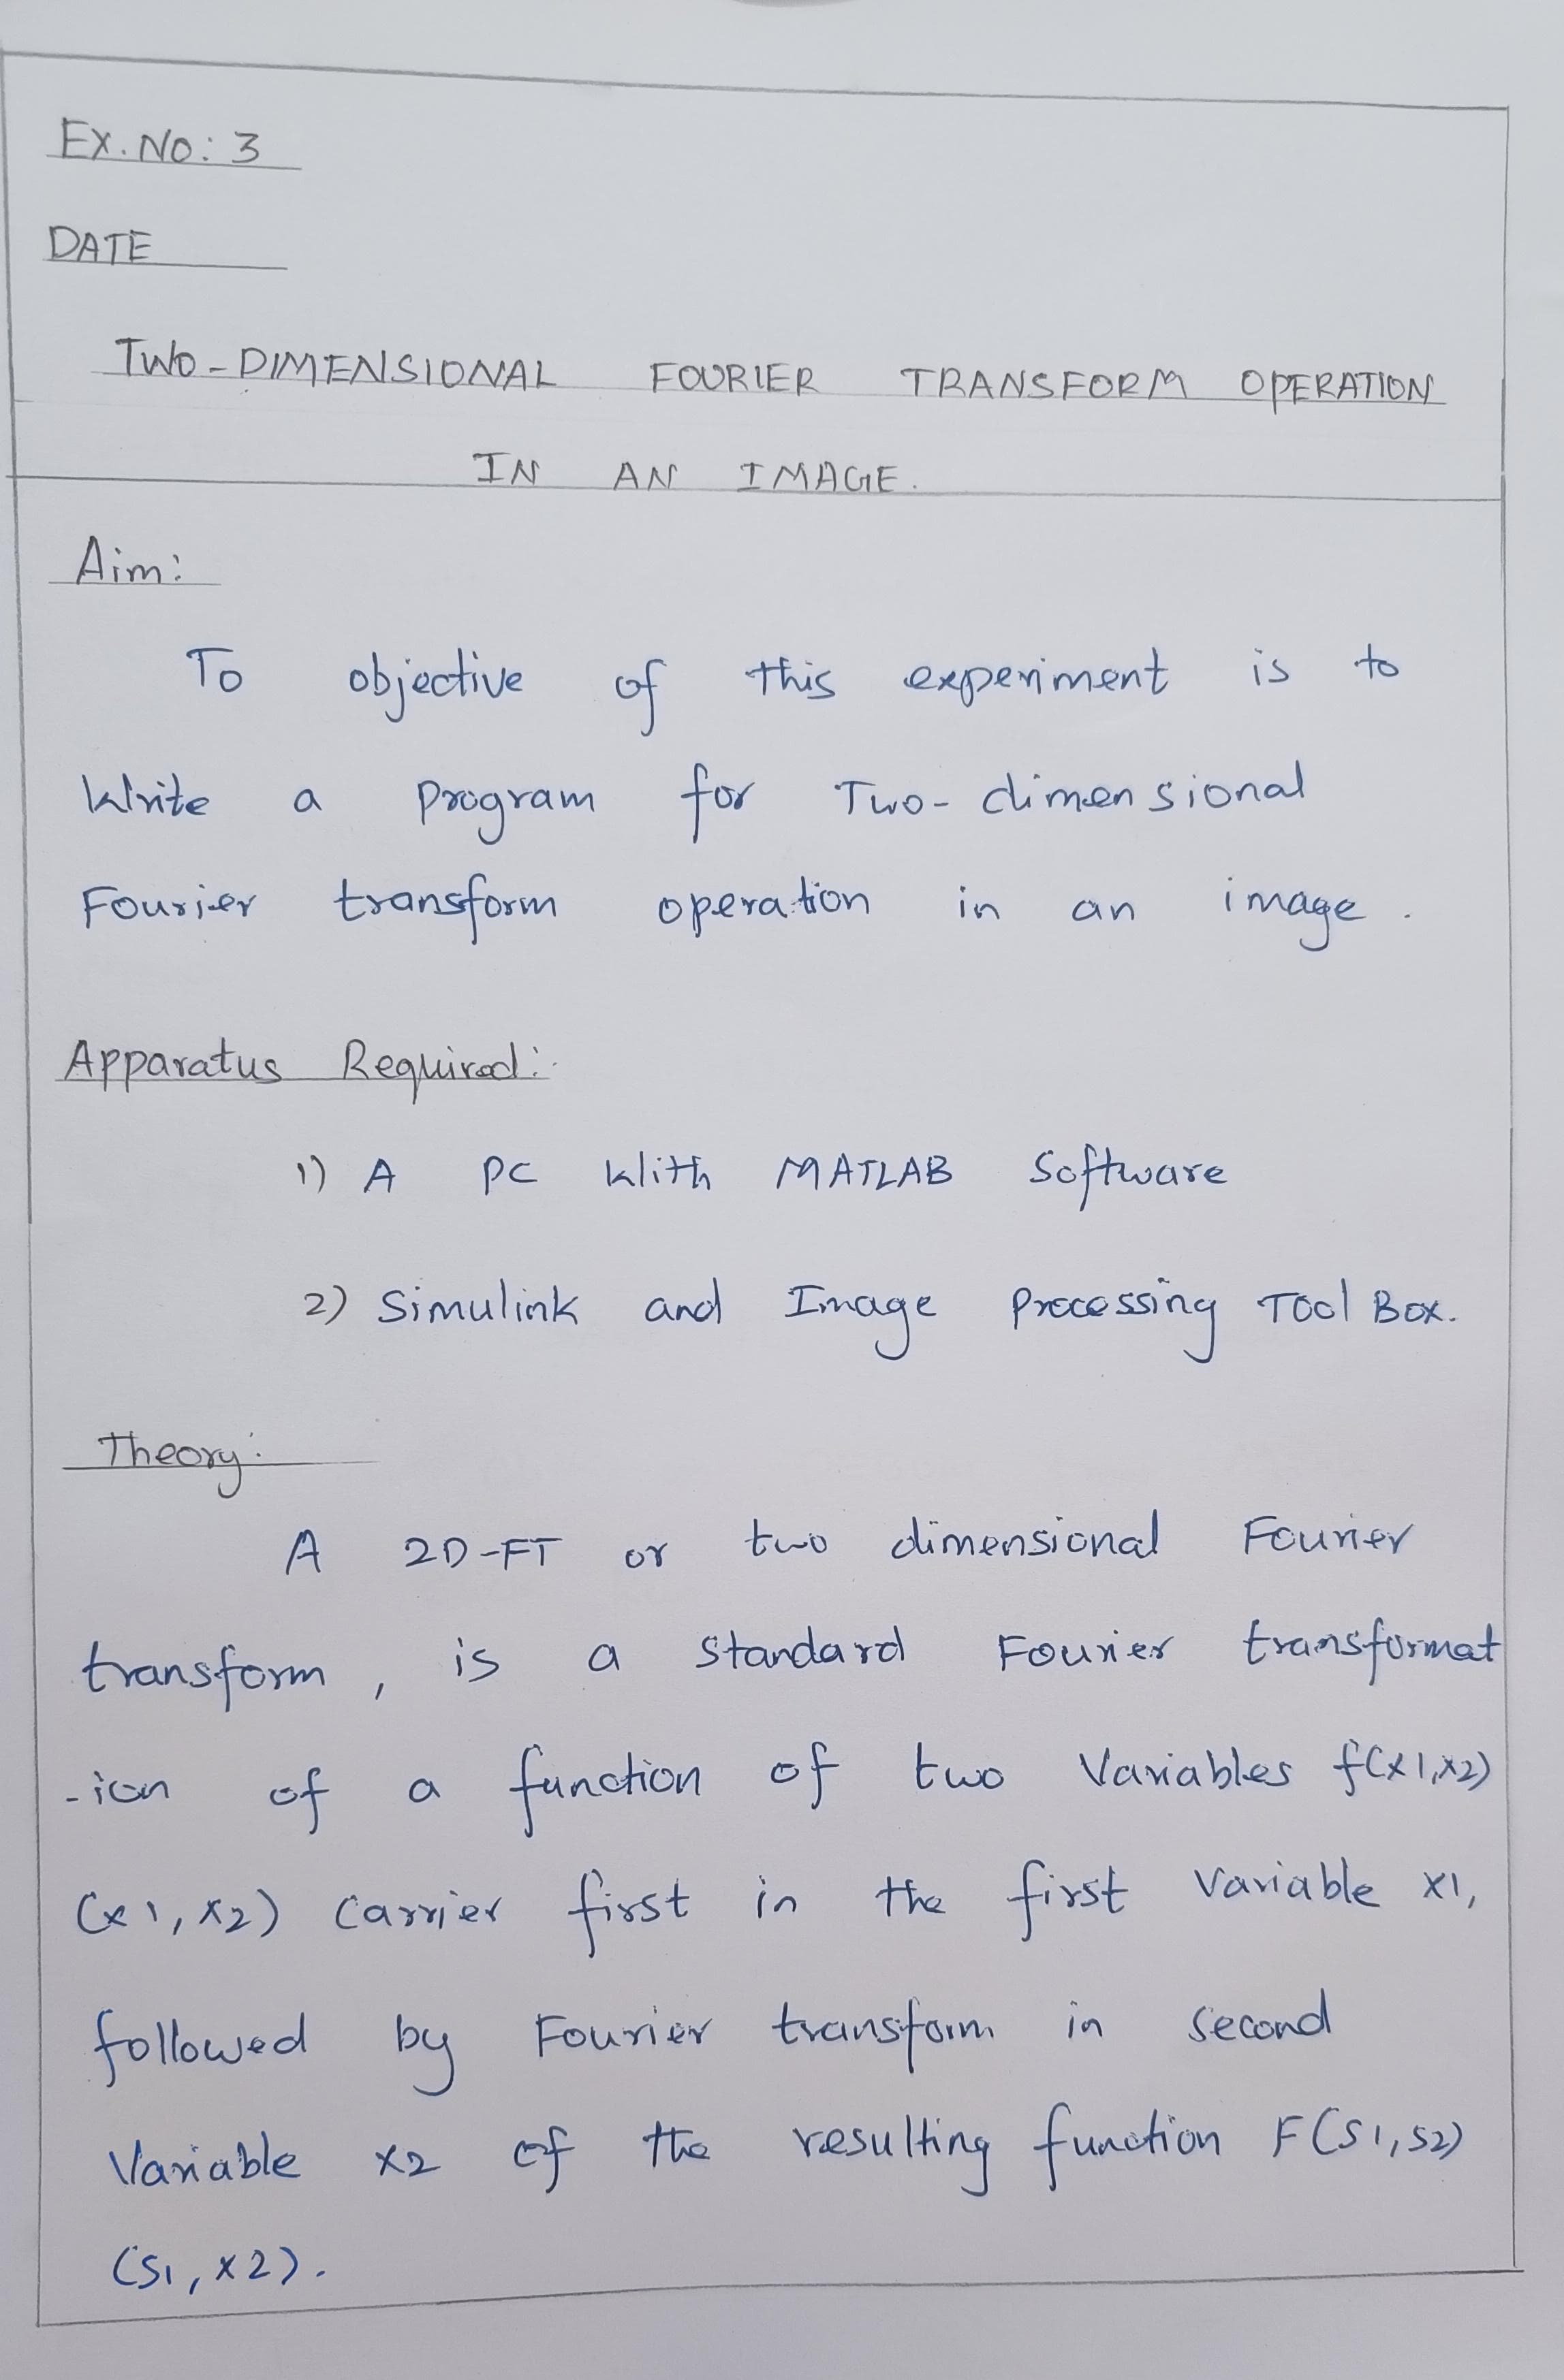 EX. NO: 3
DATE
TWO-DIMENSIONAL FOURIER TRANSFORM OPERATION
IN AN IMAGE.
Aim:
To objective of this experiment is to
Write a program for Two-dimensional
Fourier transform operation in an image.
Apparatus Required:
1) A PC With MATLAB Software
2) Simulink and Image Processing Tool Box.
Theory:
A 2D-FT or two dimensional Fourier
transform, is a standard Fourier transformat
-ion of a function of two Variables f(x1,x2)
(x1,x2) carrier first in the first Variable x1,
followed by Fourier transform in second
Variable x2 of the resulting function F(S1,S2)
(S1,x2).